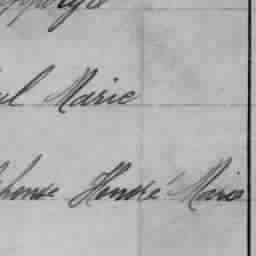 ul Marie
phonse Honoré Marie